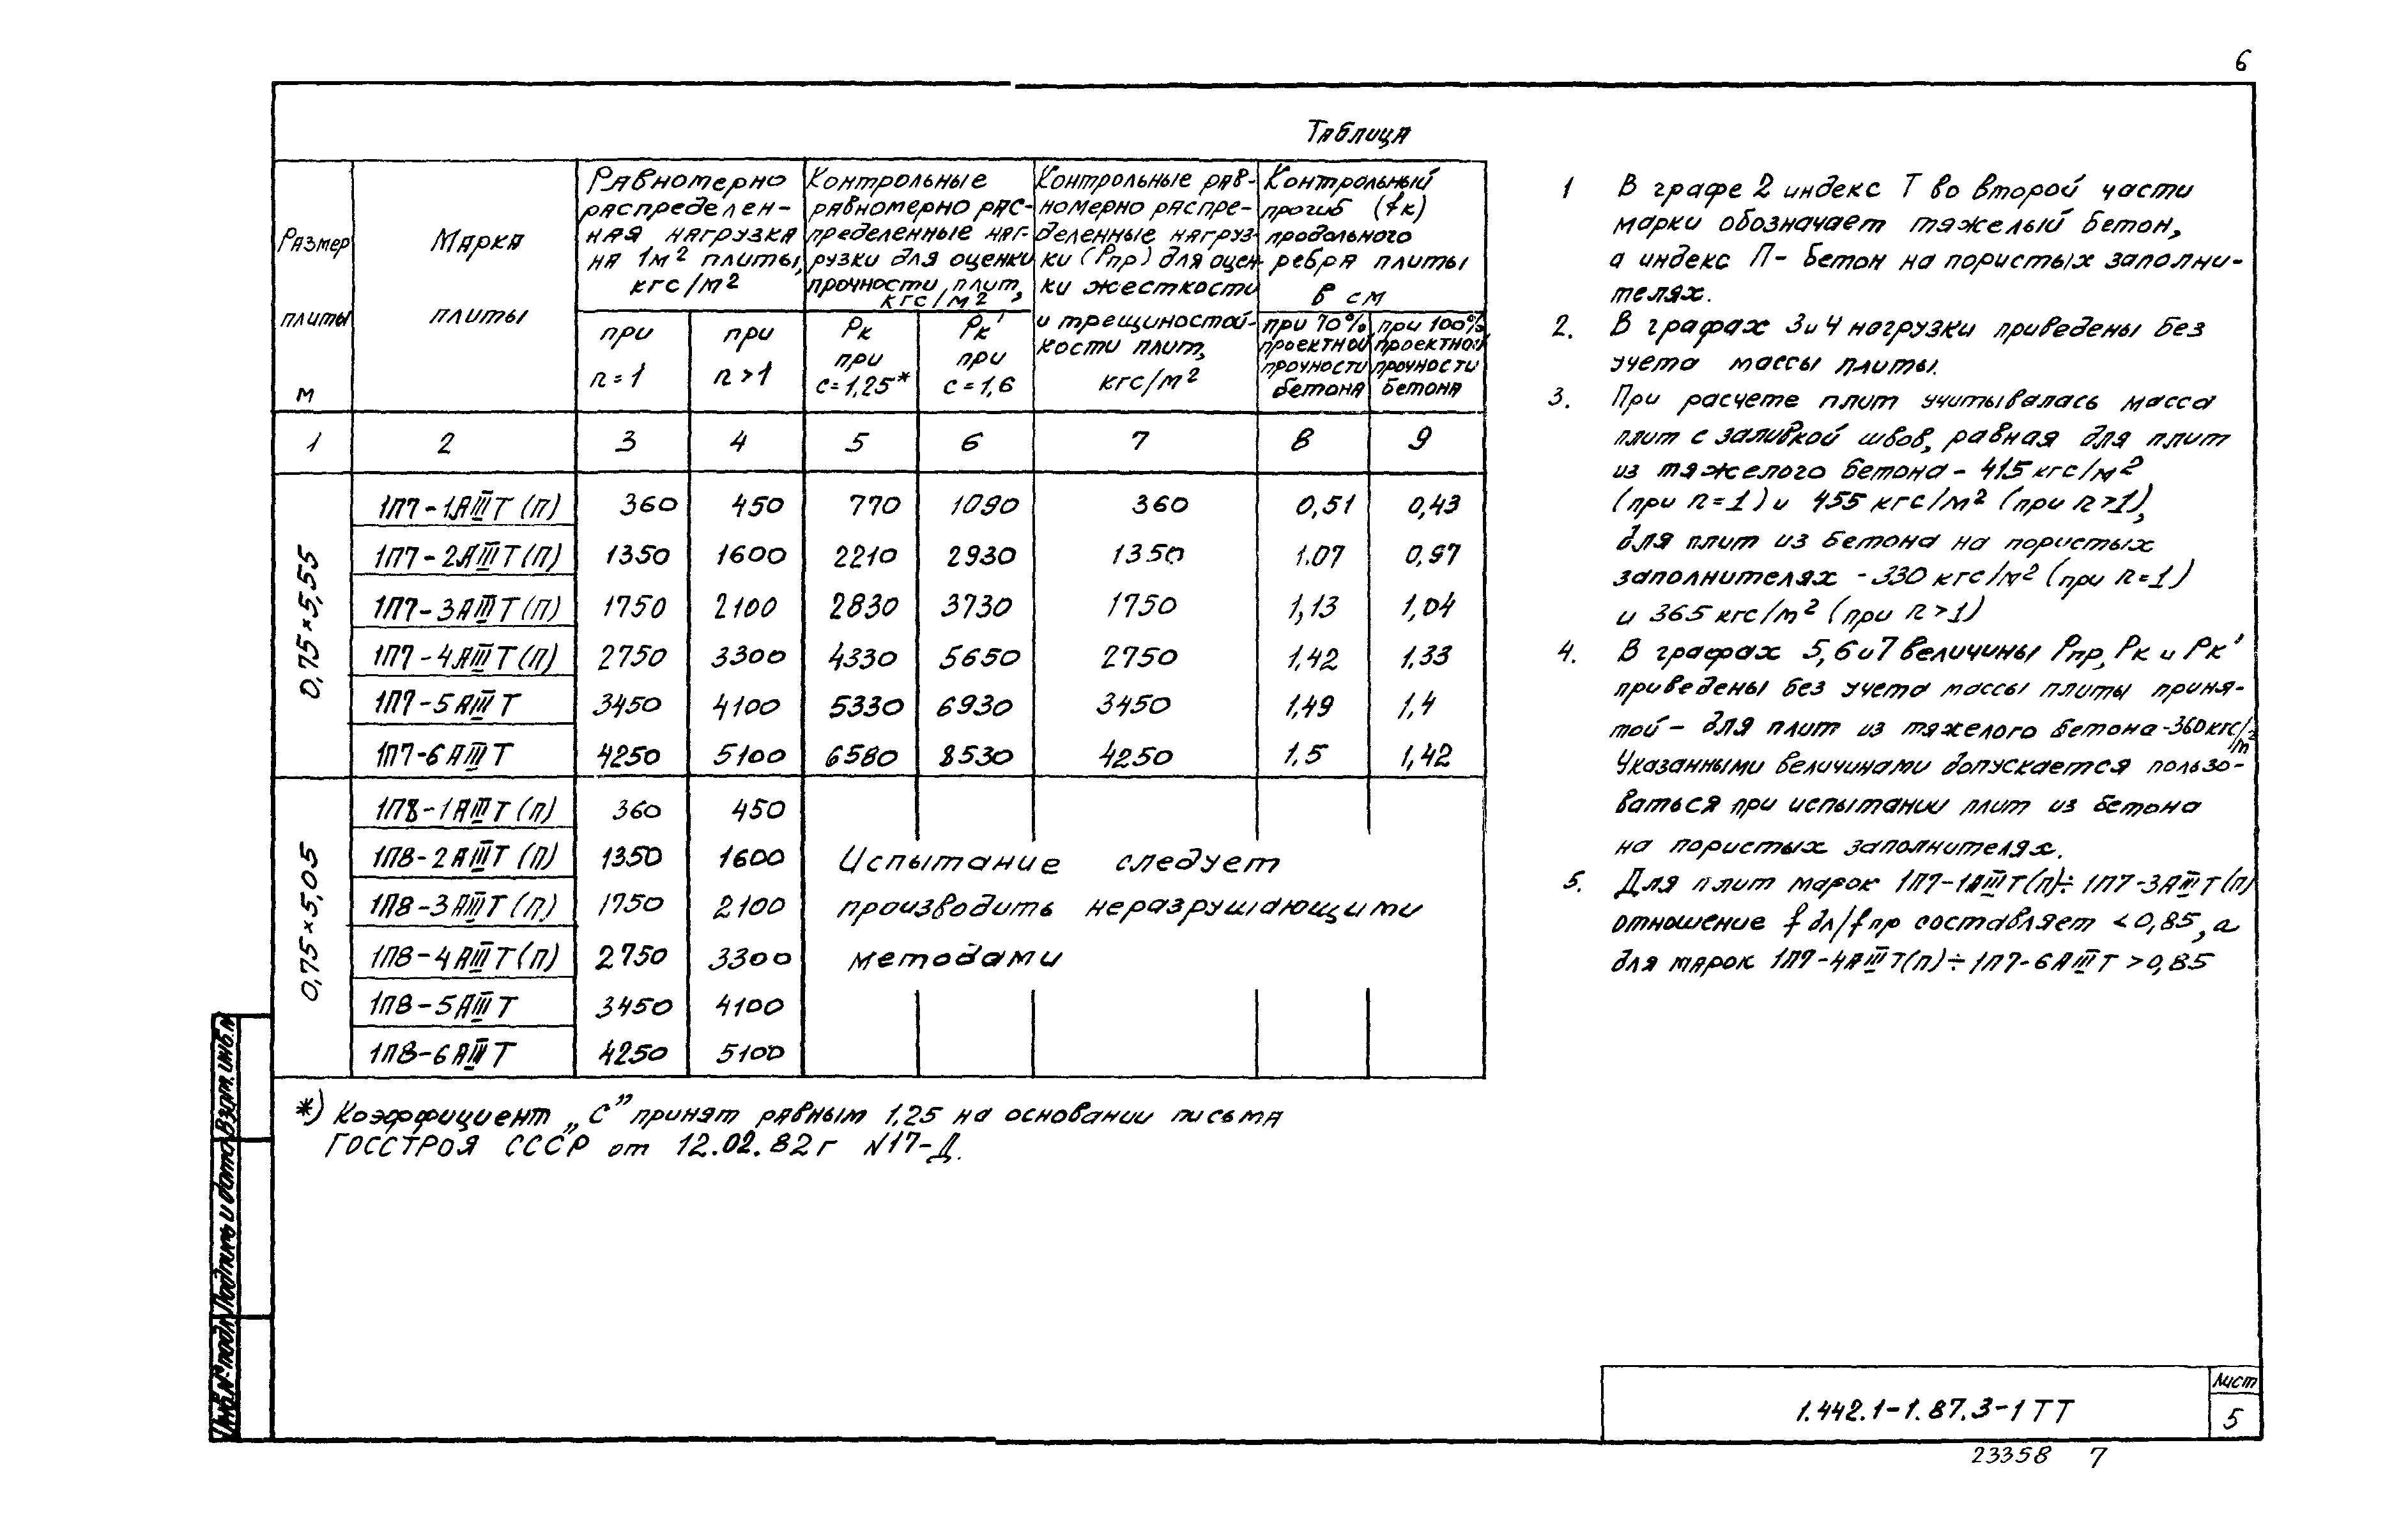 6
Таблица
Размер плиты м
Марка плиты
Равномерно распределен-ная нагрузка на 1м² плиты, кгс/м²
Контрольные равномерно рас-пределенные наг-рузки для оценки прочности плит, кгс/м²
Контрольные рав-номерно распре-деленные нагруз-ки (Рпр) для оцен-ки жесткости и трещиностой-кости плит, кгс/м²
Контрольный прогиб (fк) продольного ребра плиты в см
при n=1
при n>1
Рк при С=1,25*
Рк' при С=1,6
при 70% проектной прочности бетона
при 100% проектной прочности бетона
1 2 3 4 5 6 7 8 9
0,75×5,55
1П7-1АIIIТ(П) 360 450 770 1090 360 0,51 0,43
1П7-2АIIIТ(П) 1350 1600 2210 2930 1350 1.07 0,97
1П7-3АIIIТ(П) 1750 2100 2830 3730 1750 1,13 1,04
1П7-4АIIIТ(П) 2750 3300 4330 5650 2750 1,42 1.33
1П7-5АIIIТ 3450 4100 5330 6930 3450 1.49 1,4
1П7-6АIIIТ 4250 5100 6580 8530 4250 1.5 1,42
0,75×5,05
1П8-1АIIIТ(П) 360 450
1П8-2АIIIТ(П) 1350 1600
1П8-3АIIIТ(П) 1750 2100
1П8-4АIIIТ(П) 2750 3300
1П8-5АIIIТ 3450 4100
1П8-6АIIIТ 4250 5100
Испытание следует
производить неразрушающими
методами
*) Коэффициент „С” принят равным 1,25 на основании письма
ГОССТРОЯ СССР от 12.02.82г N17-Д.
1 В графе 2 индекс Т во второй части
марки обозначает тяжелый бетон,
а индекс П- бетон на пористых заполни-
телях.
2. В графах 3и4 нагрузки приведены без
учета массы плиты.
3. При расчете плит учитывалась масса
плит с заливкой швов, равная для плит
из тяжелого бетона- 415 кгс/м²
(при n=1) и 455 кгс/м² (при n>1),
для плит из бетона на пористых
заполнителях -330 кгс/м² (при n=1)
и 365 кгс/м² (при n>1)
4. В графах 5,6и7 величины Рпр, Рк и Рк'
приведены без учета массы плиты приня-
той- для плит из тяжелого бетона-360кгс/м²
Указанными величинами допускается пользо-
ваться при испытании плит из бетона
на пористых заполнителях.
5. Для плит марок 1П7-1АIIIТ(П)÷1П7-3АIIIТ(П)
отношение f дл/f пр составляет <0,85, а
для марок 1П7-4АIIIТ(П)÷1П7-6АIIIТ >0,85
Взам. инв. N
Подпись и дата
Инв.N°подл.
1.442.1-1.87.3-1ТТ
Лист
5
23358 7